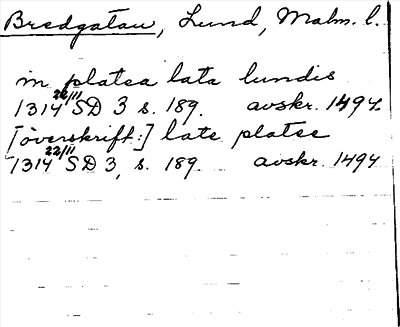 Bredgatan, Lund, Malm. l.
in platea lata lundis
1314 22/11 SD 3 s. 189. avskr. 1494.
[överskrift:] late platee
1314 22/11 SD 3, s. 189. avskr. 1494